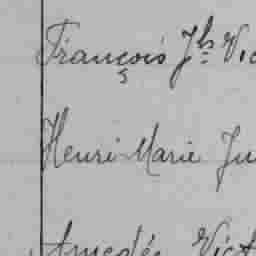 François Jh Vic
Henri Marie Ju
Amedée Vict